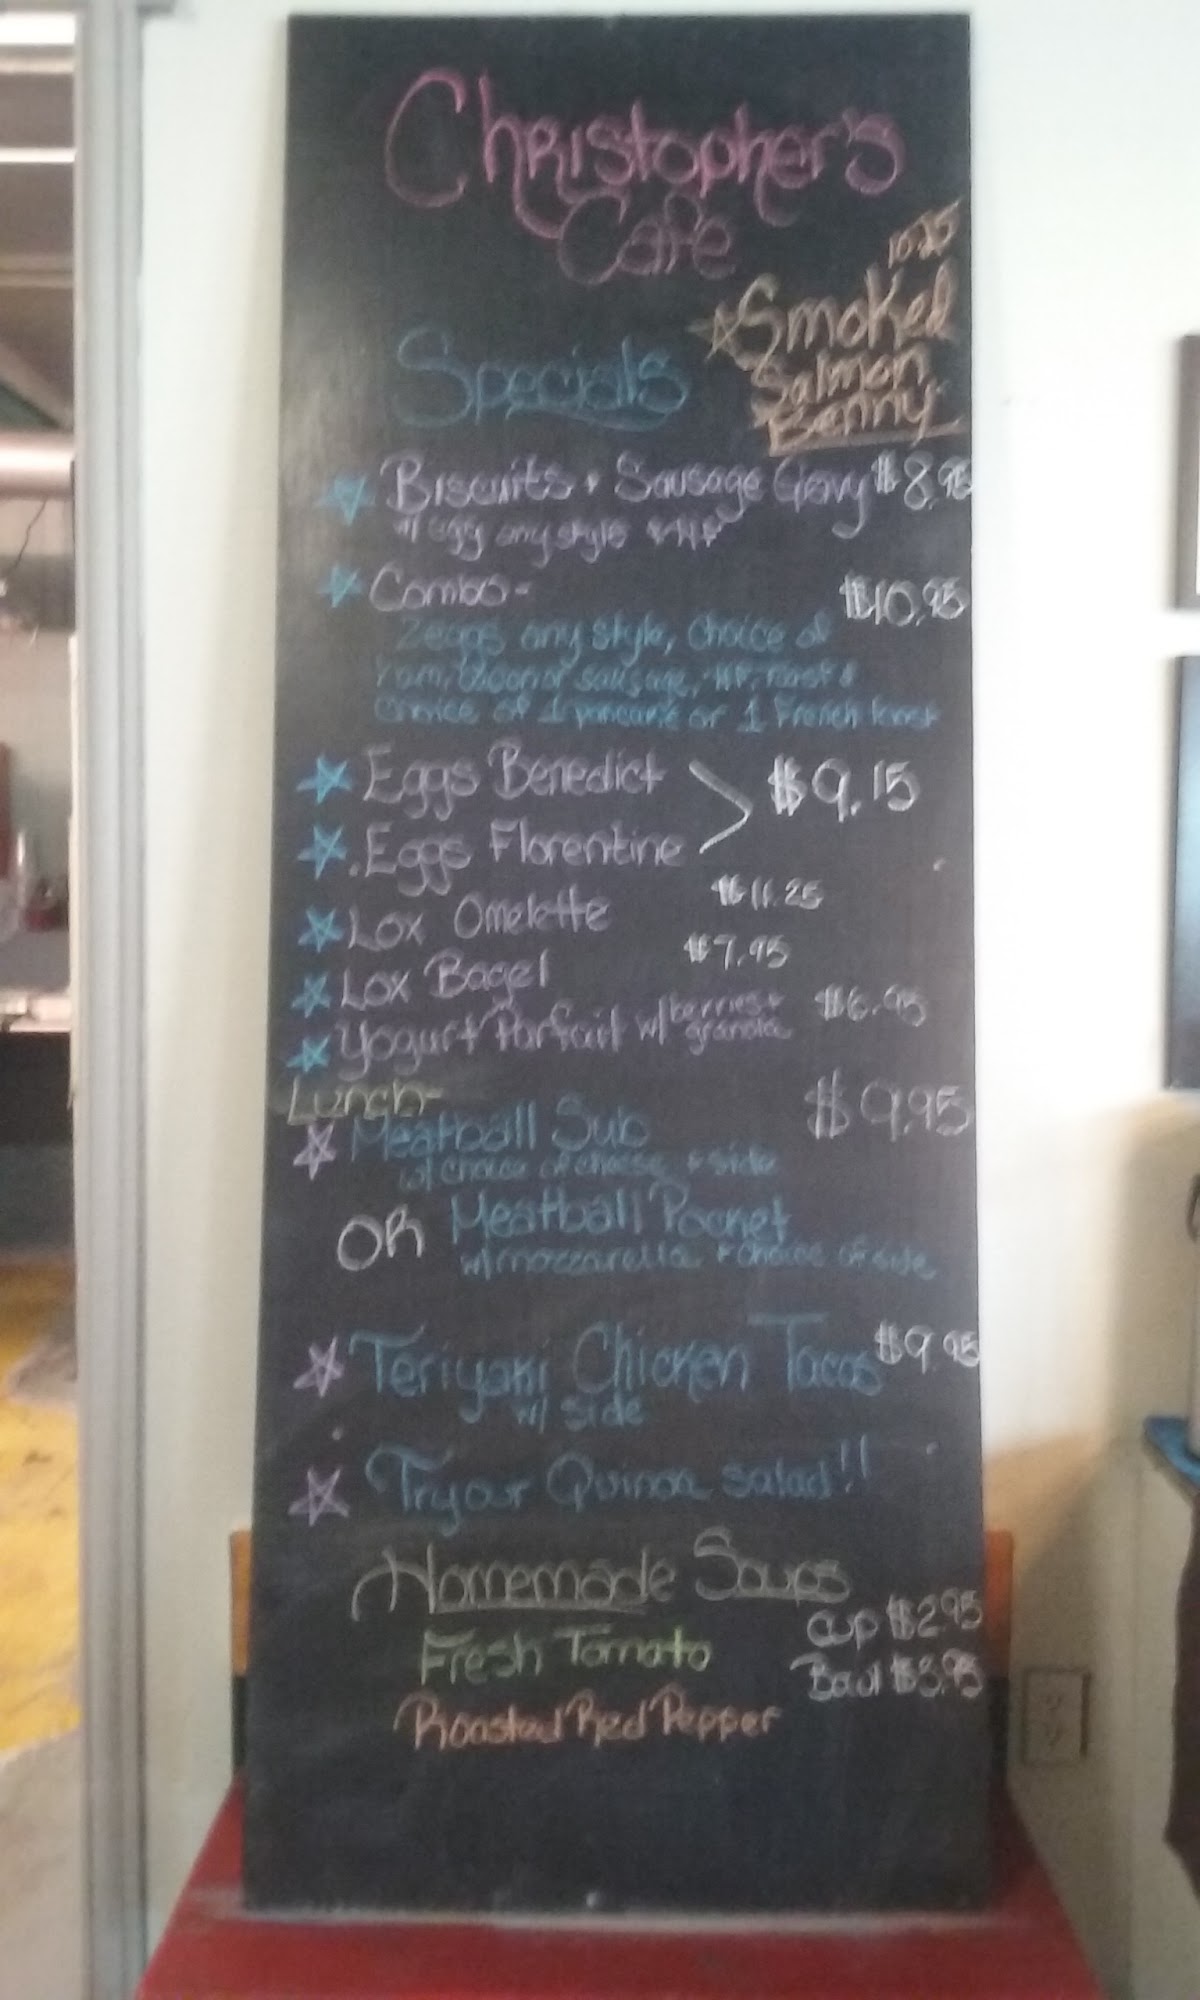 Christopher's
Cafe
10.25
Smoked
Salmon
Benny
Specials
Biscuits + Sausage Gravy $8.95
w/ egg any style
Combo- $10.95
2 eggs any style, choice of
ham, bacon or sausage, HF, toast &
choice of 1 pancake or 1 French toast
Eggs Benedict $9.15
Eggs Florentine
Lox Omelette $11.25
Lox Bagel $7.95
Yogurt Parfait w/ berries + granola $6.95
Lunch-
Meatball Sub $9.95
w/ choice of cheese + side
OR Meatball Pocket
w/ mozzarella + choice of side
Teriyaki Chicken Tacos $9.95
w/ side
Try our Quinoa salad!!
Homemade Soups
cup $2.95
Fresh Tomato
Bowl $3.95
Roasted Red Pepper